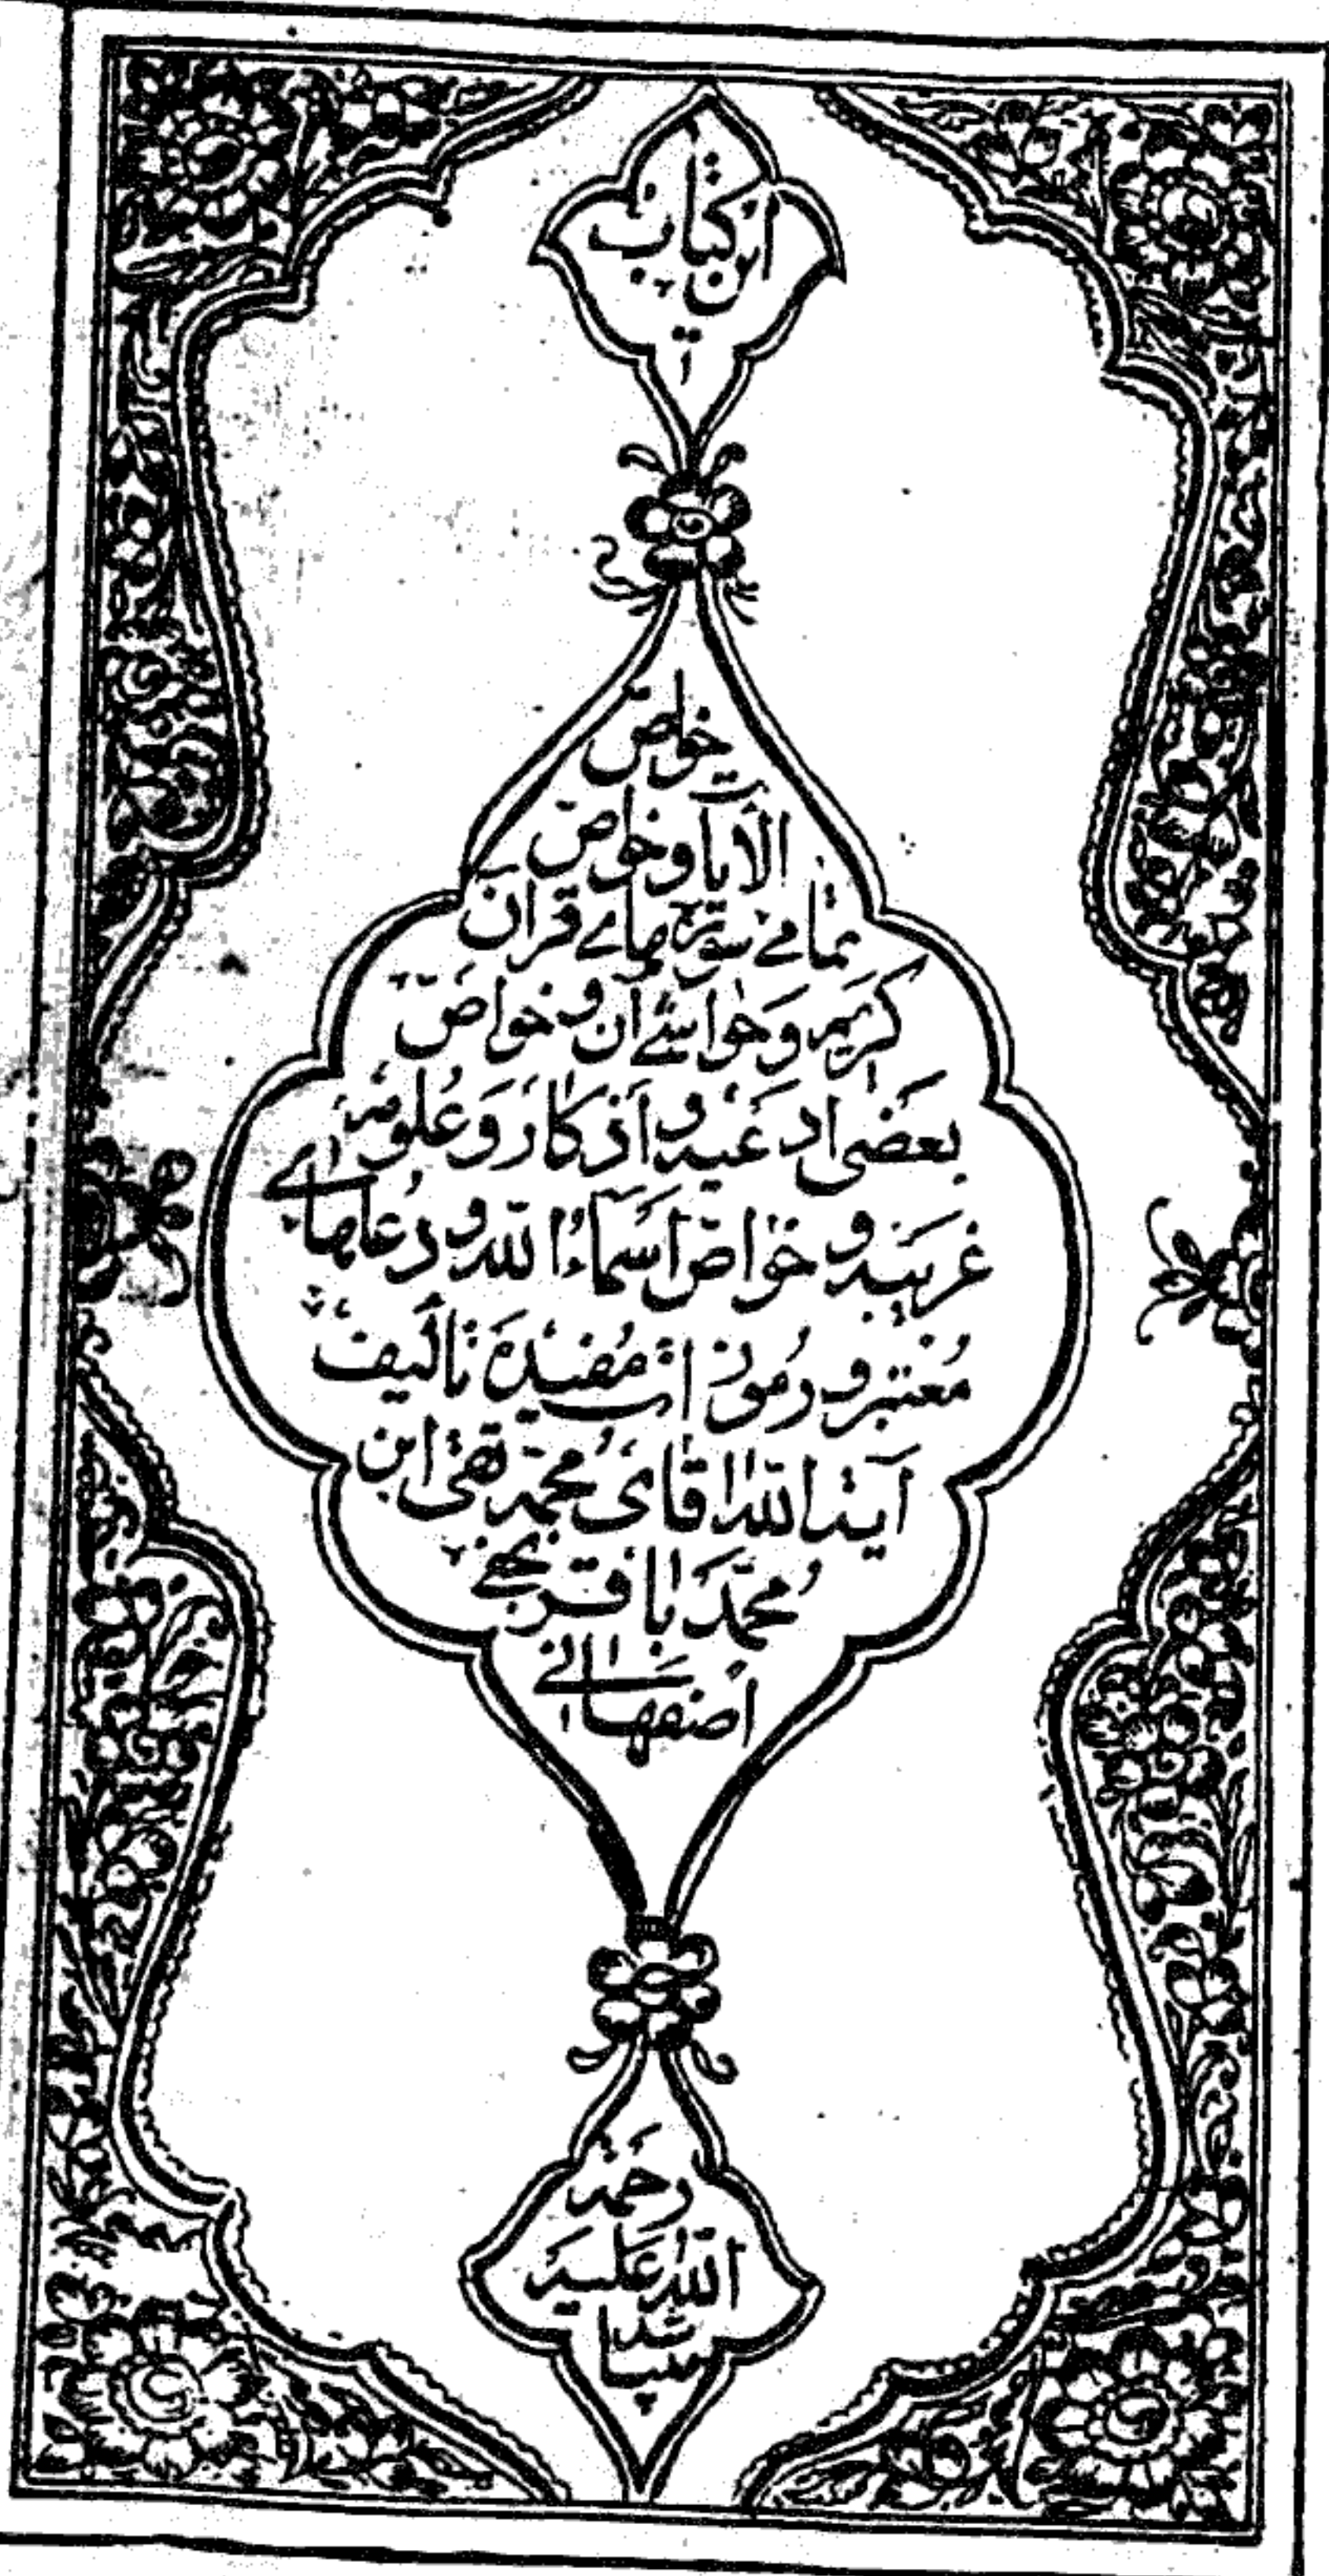 این کتاب
خواص
الآیات و خواص
تمامی سورتهای قرآن
کریم و حواشی آن و خواص
بعضی ادعیه و اذکار و علومه
غریبه و خواص اسماء الله و دعاهای
معتبر و رموزات مفیده تألیف
آیت الله آقای محمد تقی ابن
محمد باقر نجفی
اصفهانی
رحمة
الله علیه